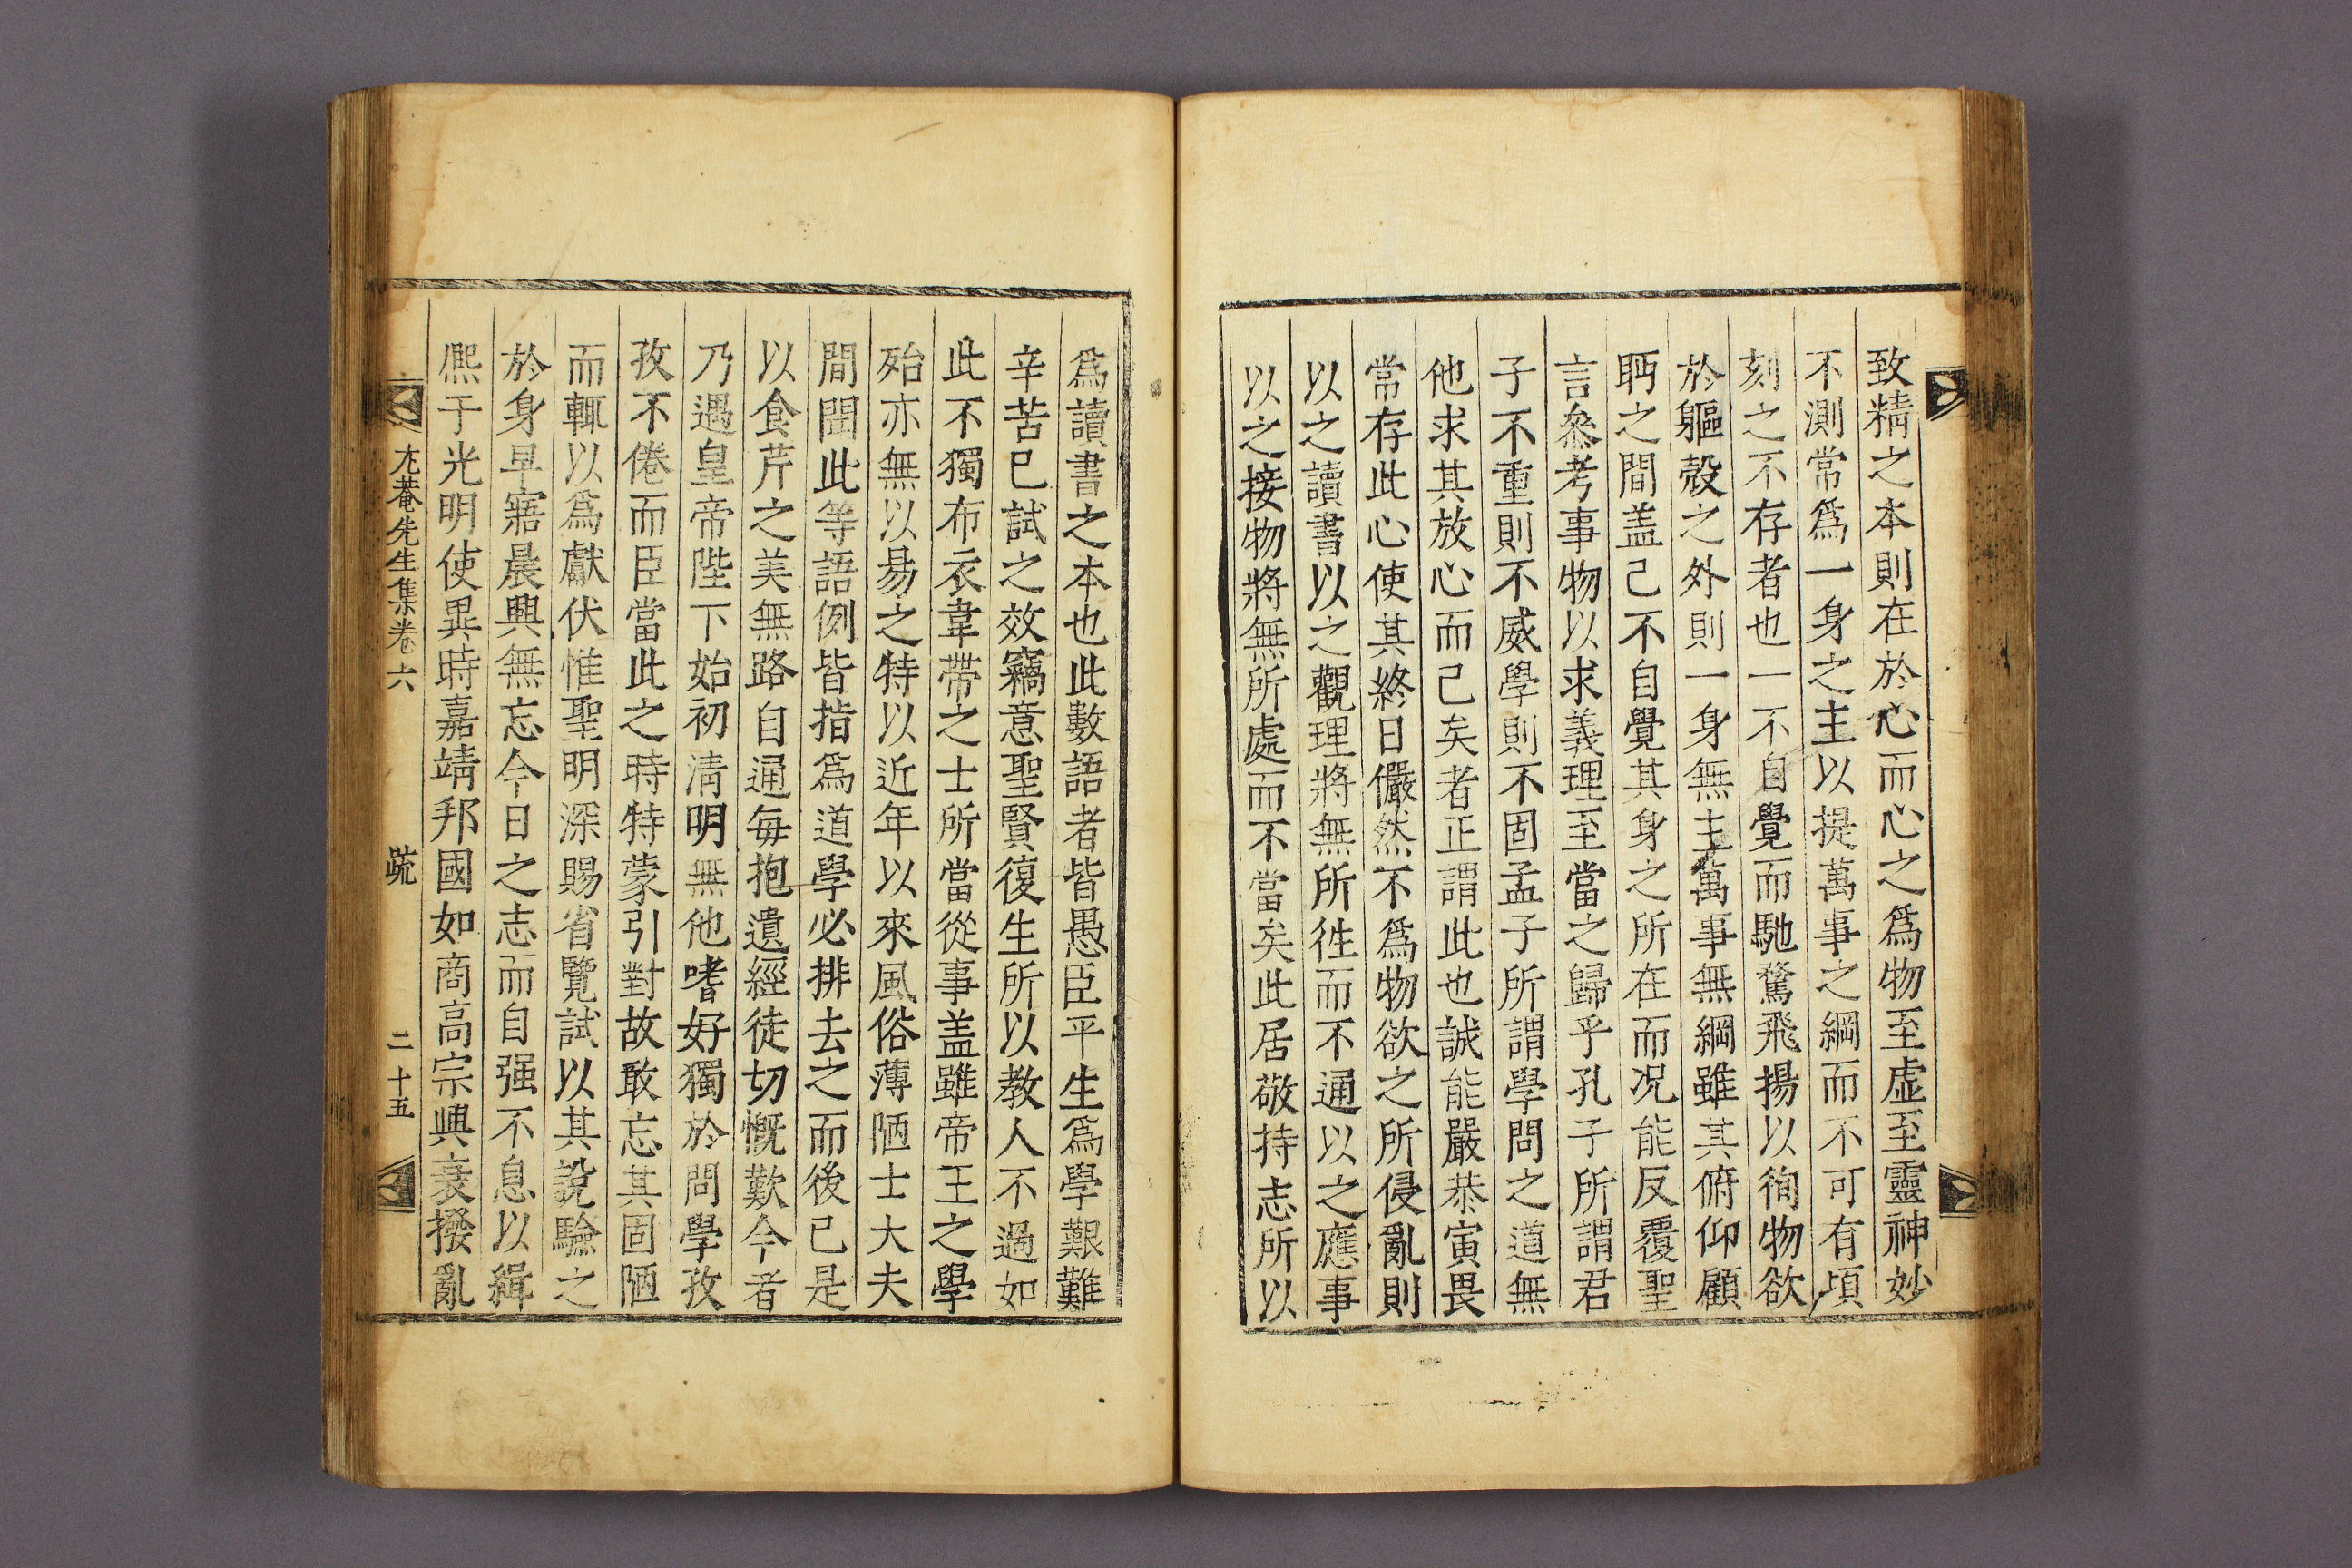 致精之本則在於心而心之爲物至虛至靈神妙
不測常爲一身之主以提萬事之綱而不可有頃
刻之不存者也一不自覺而馳騖飛揚以徇物欲
於軀殼之外則一身無主萬事無綱雖其俯仰顧
眄之間盖已不自覺其身之所在而况能反覆聖
言叅考事物以求義理至當之歸乎孔子所謂君
子不重則不威學則不固孟子所謂學問之道無
他求其放心而已矣者正謂此也誠能嚴恭寅畏
常存此心使其終日儼然不爲物欲之所侵亂則
以之讀書以之觀理將無所徃而不通以之應事
以之接物將無所處而不當矣此居敬持志所以
爲讀書之本也此數語者皆愚臣平生爲學艱難
辛苦已試之效竊意聖賢復生所以教人不過如
此不獨布衣韋帶之士所當從事盖雖帝王之學
殆亦無以易之特以近年以來風俗薄陋士大夫
間聞此等語例皆指爲道學必排去之而後已是
以食芹之美無路自通每抱遺經徒切慨歎今者
乃遇皇帝陛下始初清明無他嗜好獨於問學孜
孜不倦而臣當此之時特蒙引對故敢忘其固陋
而輒以爲獻伏惟聖明深賜省覽試以其說驗之
於身早寤晨興無忘今日之志而自强不息以緝
熈于光明使異時嘉靖邦國如商高宗興衰撥亂
尤菴先生集卷六 疏 二十五